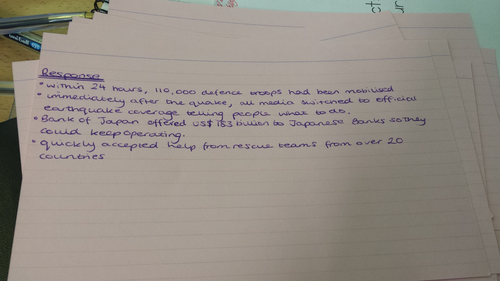 Response
• within 24 hours, 110,000 defence troops had been mobilised
• immediately after the quake, all media switched to official
earthquake coverage telling people what to do.
• Bank of Japan offered US$ 183 billion to Japanese Banks so they
could keep operating.
• quickly accepted help from rescue teams from over 20
countries